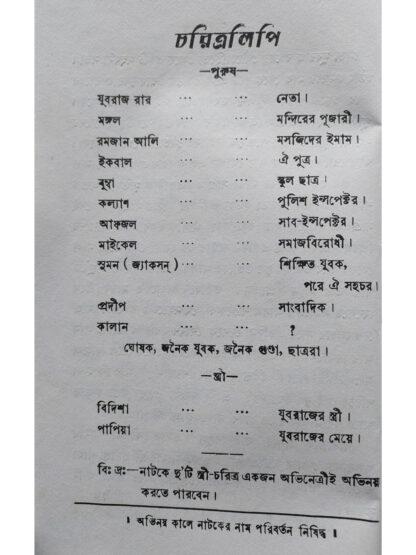 চরিত্রলিপি
—পুরুষ—
যুবরাজ রায় ... ... নেতা।
মঙ্গল ... ... মন্দিরের পূজারী।
রমজান আলি ... ... মসজিদের ইমাম।
ইকবাল ... ... ঐ পুত্র।
বুধা ... ... স্কুল ছাত্র।
কল্যাণ ... ... পুলিশ ইন্সপেক্টর।
আফজল ... ... সাব-ইন্সপেক্টর।
মাইকেল ... ... সমাজবিরোধী।
সুমন ( জ্যাকসন্ ) ... ... শিক্ষিত যুবক,
পরে ঐ সহচর।
প্রদীপ ... ... সাংবাদিক।
কালান ... ... ?
ঘোষক, জনৈক যুবক, জনৈক গুণ্ডা, ছাত্ররা।
—স্ত্রী—
বিদিশা ... ... যুবরাজের স্ত্রী।
পাপিয়া ... ... যুবরাজের মেয়ে।
বিঃ দ্রঃ—নাটকে দু'টি স্ত্রী-চরিত্র একজন অভিনেত্রীই অভিনয়
করতে পারবেন।
। অভিনয় কালে নাটকের নাম পরিবর্তন নিষিদ্ধ।